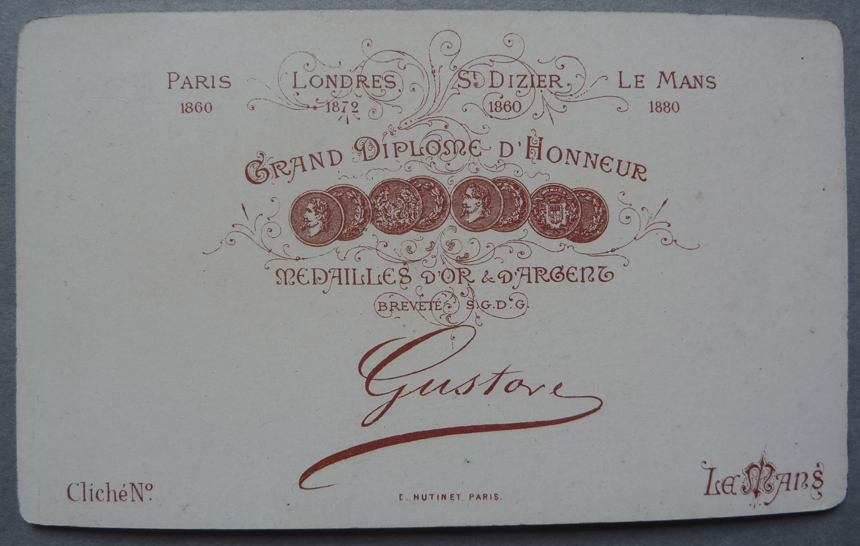 PARIS LONDRES ST DIZIER LE MANS
1860 1872 1860 1880
GRAND DIPLOME D'HONNEUR
MEDAILLES D'OR & D'ARGENT
BREVETÉ S.G.D.G.
Gustave
Cliché No.
C. HUTINET, PARIS.
LE MANS